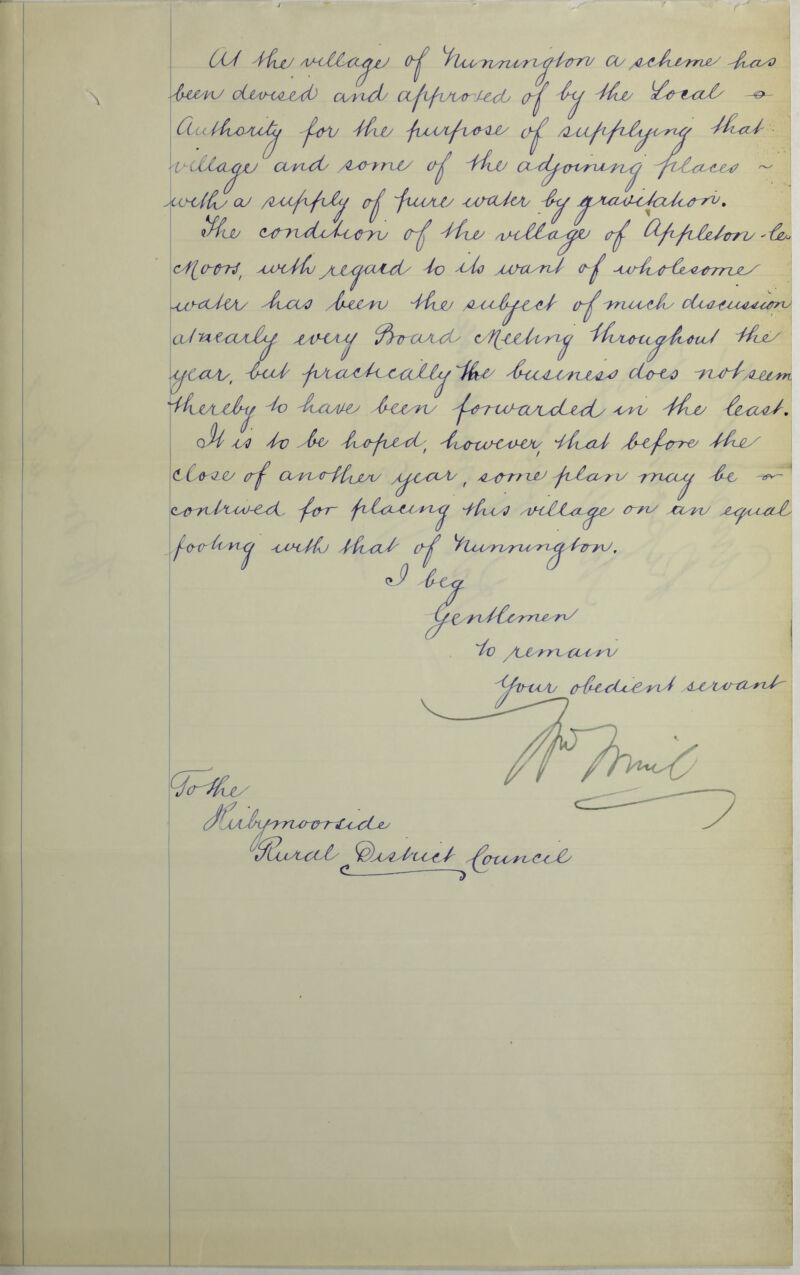 At the village of Nunnington a scheme has
been devised and approved of by the Local
Authority for the purpose of supplying that
village and some of the adjoining places ~
with a supply of pure water by gravitation.
The condition of the village of Appleton-le-
Moors, with regard to its want of wholesome
water has been the subject of much discussion
at nearly every Board Meeting throughout the
year, but practically the business does not seem
thereby to have been forwarded in the least.
It is to be hoped, however, that before the
close of another year, some plan may be
contrived for placing this village on an equal
footing with that of Nunnington.
I beg
Gentlemen
to remain
Your obedient servant
To the
Kirbymoorside
Rural District Council